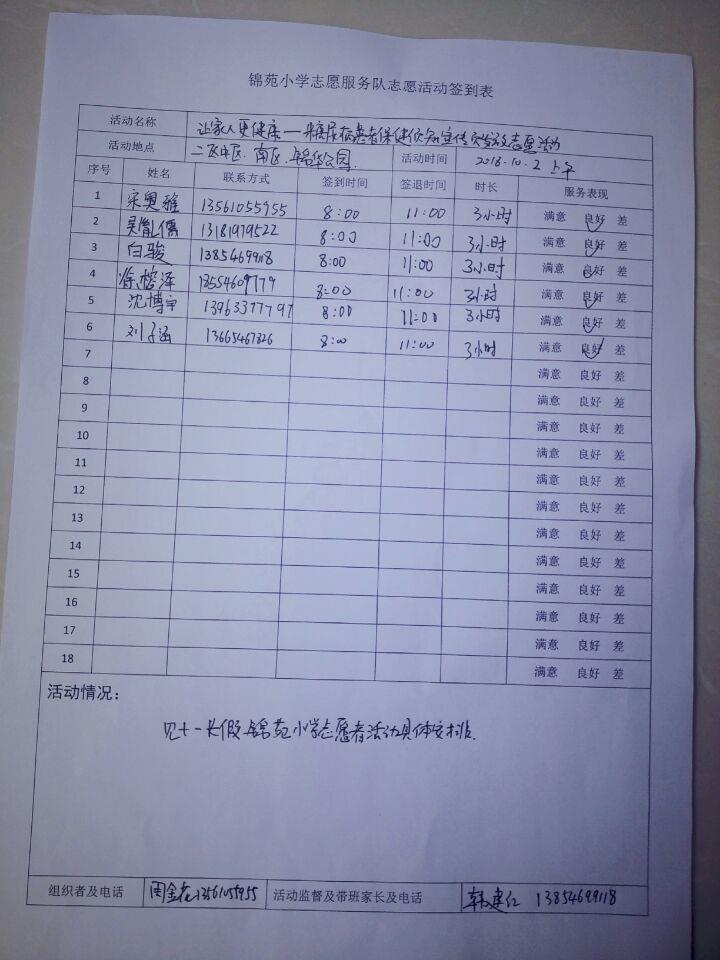 锦苑小学志愿服务队志愿活动签到表
活动名称 让家人更健康——糖尿病患者保健须知宣传页发放志愿活动
活动地点 二区中区、南区、锦华公园 活动时间 2016.10.2 上午
序号 姓名 联系方式 签到时间 签退时间 时长 服务表现
1 宋奥雅 13561055955 8:00 11:00 3小时 满意 良好 差
2 吴胤儒 13181979522 8:00 11:00 3小时 满意 良好 差
3 白骏 13854699118 8:00 11:00 3小时 满意 良好 差
4 徐楷泽 18554609779 8:00 11:00 3小时 满意 良好 差
5 沈博宇 13963377797 8:00 11:00 3小时 满意 良好 差
6 刘子涵 13665467826 8:00 11:00 3小时 满意 良好 差
7 满意 良好 差
8 满意 良好 差
9 满意 良好 差
10 满意 良好 差
11 满意 良好 差
12 满意 良好 差
13 满意 良好 差
14 满意 良好 差
15 满意 良好 差
16 满意 良好 差
17 满意 良好 差
18 满意 良好 差
活动情况：
见十一长假锦苑小学志愿者活动具体安排.
组织者及电话 周金花13561055955 活动监督及带班家长及电话 韩建红 13854699118